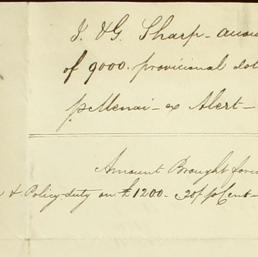 J. & G. Sharp - 
of 9000. provisional
p Menai - ex Alert -
Amount Brought
& Policy duty on £1200 - p Cent -